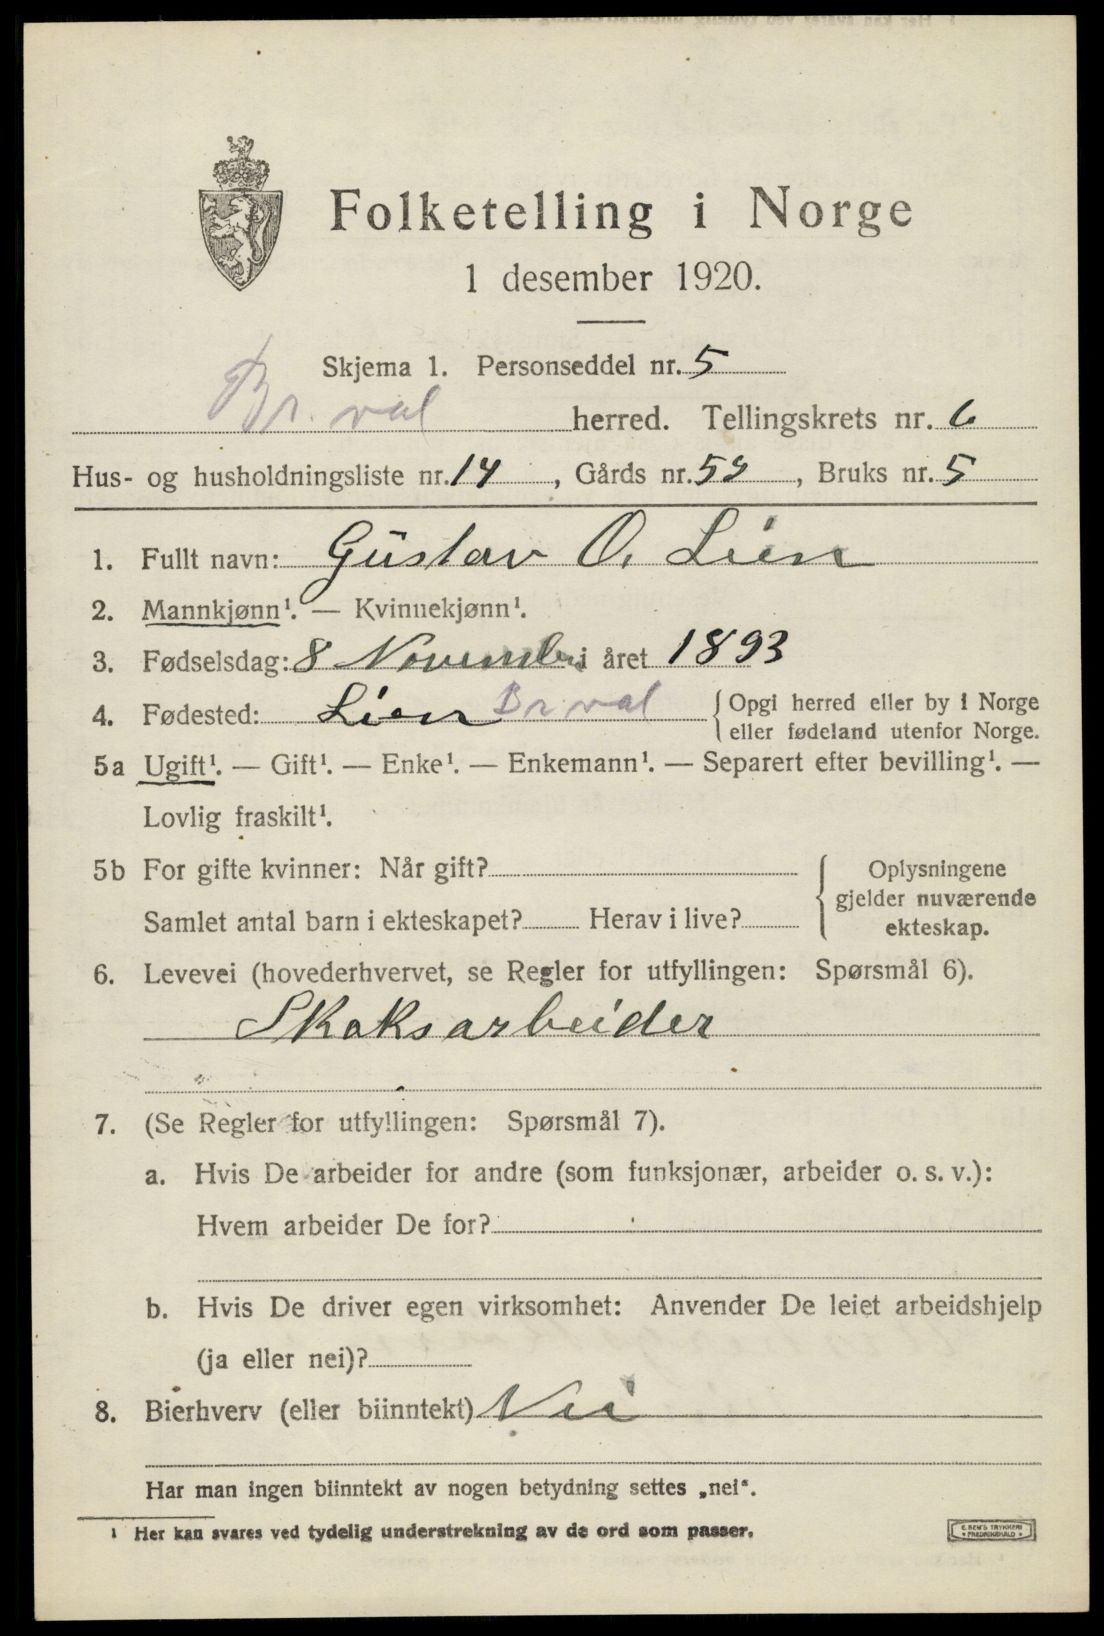 Folketelling i Norge
1 desember 1920.
Skjema 1. Personseddel nr. 5
Br. val herred. Tellingskrets nr. 6
Hus- og husholdningsliste nr. 14, Gårds nr. 59, Bruks nr. 5
1. Fullt navn: Gustav O. Lien
2. Mannkjønn¹. — Kvinnekjønn¹.
3. Fødselsdag: 8 Novembr i året 1893
4. Fødested: Lien Br. val { Opgi herred eller by i Norge
eller fødeland utenfor Norge.
5a Ugift¹. — Gift¹. — Enke¹. — Enkemann¹. — Separert efter bevilling¹. —
Lovlig fraskilt¹.
5b For gifte kvinner: Når gift? { Oplysningene
gjelder nuværende
Samlet antal barn i ekteskapet? Herav i live? ekteskap.
6. Levevei (hovederhvervet, se Regler for utfyllingen: Spørsmål 6).
Skoksarbeider
7. (Se Regler for utfyllingen: Spørsmål 7).
a. Hvis De arbeider for andre (som funksjonær, arbeider o. s. v.):
Hvem arbeider De for?
b. Hvis De driver egen virksomhet: Anvender De leiet arbeidshjelp
(ja eller nei)?
8. Bierhverv (eller biinntekt) Nei
Har man ingen biinntekt av nogen betydning settes „nei“.
¹ Her kan svares ved tydelig understrekning av de ord som passer.